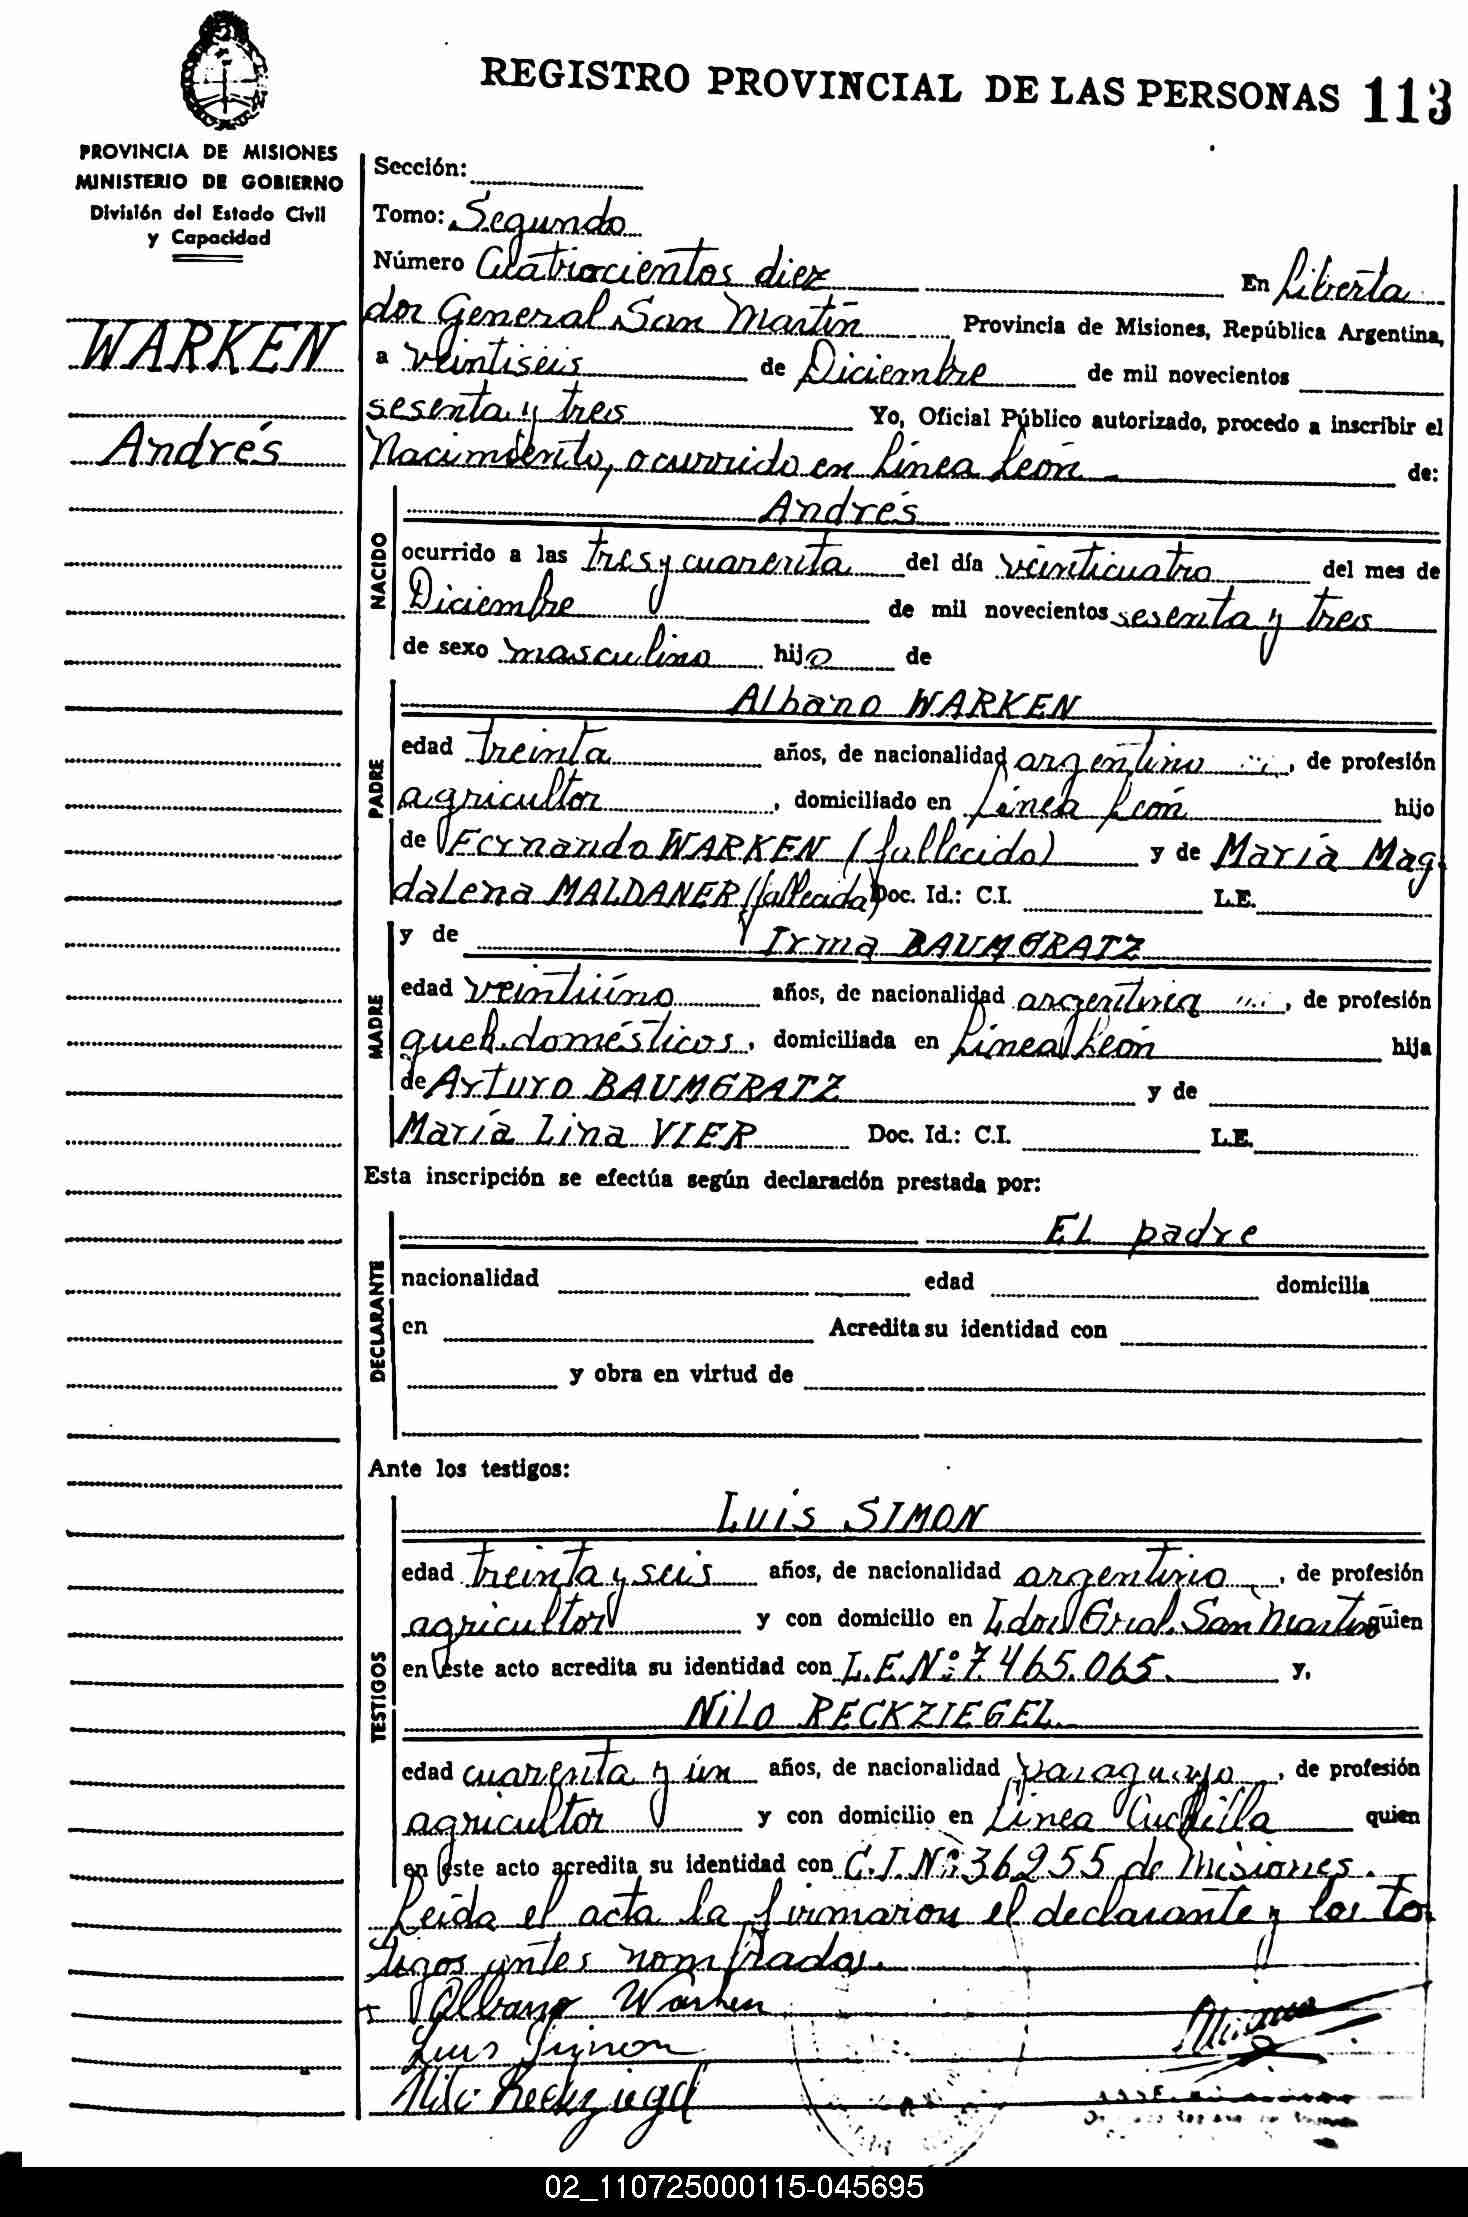 REGISTRO PROVINCIAL DE LAS PERSONAS 113
PROVINCIA DE MISIONES
MINISTERIO DE GOBIERNO
División del Estado Civil
y Capacidad
WARKEN
Andrés
Sección:
Tomo: Segundo
Número Cuatrocientos diez En Liberta
dor General San Martín Provincia de Misiones, República Argentina,
a veintiseis de Diciembre de mil novecientos
sesenta y tres Yo, Oficial Público autorizado, procedo a inscribir el
Nacimiento, ocurrido en Línea León de:
NACIDO
Andrés
ocurrido a las tres y cuarenta del día veinticuatro del mes de
Diciembre de mil novecientos sesenta y tres
de sexo masculino hijo de
PADRE
Albano WARKEN
edad treinta años, de nacionalidad argentino, de profesión
agricultor, domiciliado en Línea León hijo
de Fernando WARKEN (fallecido) y de María Mag
dalena MALDANER (fallecida) Doc. Id.: C.I. L.E.
MADRE
y de Irma BAUMGRATZ
edad veintiúno años, de nacionalidad argentina, de profesión
queh. domésticos, domiciliada en Línea León hija
de Arturo BAUMGRATZ y de
María Lina VIER Doc. Id.: C.I. L.E.
Esta inscripción se efectúa según declaración prestada por:
DECLARANTE
El padre
nacionalidad edad domicilia
en Acredita su identidad con
y obra en virtud de
Ante los testigos:
TESTIGOS
Luis SIMON
edad treinta y seis años, de nacionalidad argentino, de profesión
agricultor y con domicilio en Ldor Gral. San Martín quien
en este acto acredita su identidad con L.E.Nº: 7.465.065. y,
Nilo RECKZIEGEL
edad cuarenta y ún años, de nacionalidad paraguayo, de profesión
agricultor y con domicilio en Línea Cuchilla quien
en este acto acredita su identidad con C.I.Nº: 36255 de Misiones.
Leída el acta la firmaron el declarante y los tes
tigos antes nombrados.
Albano Warken
Luis Simon
Nilo Reckziegel
02_110725000115-045695